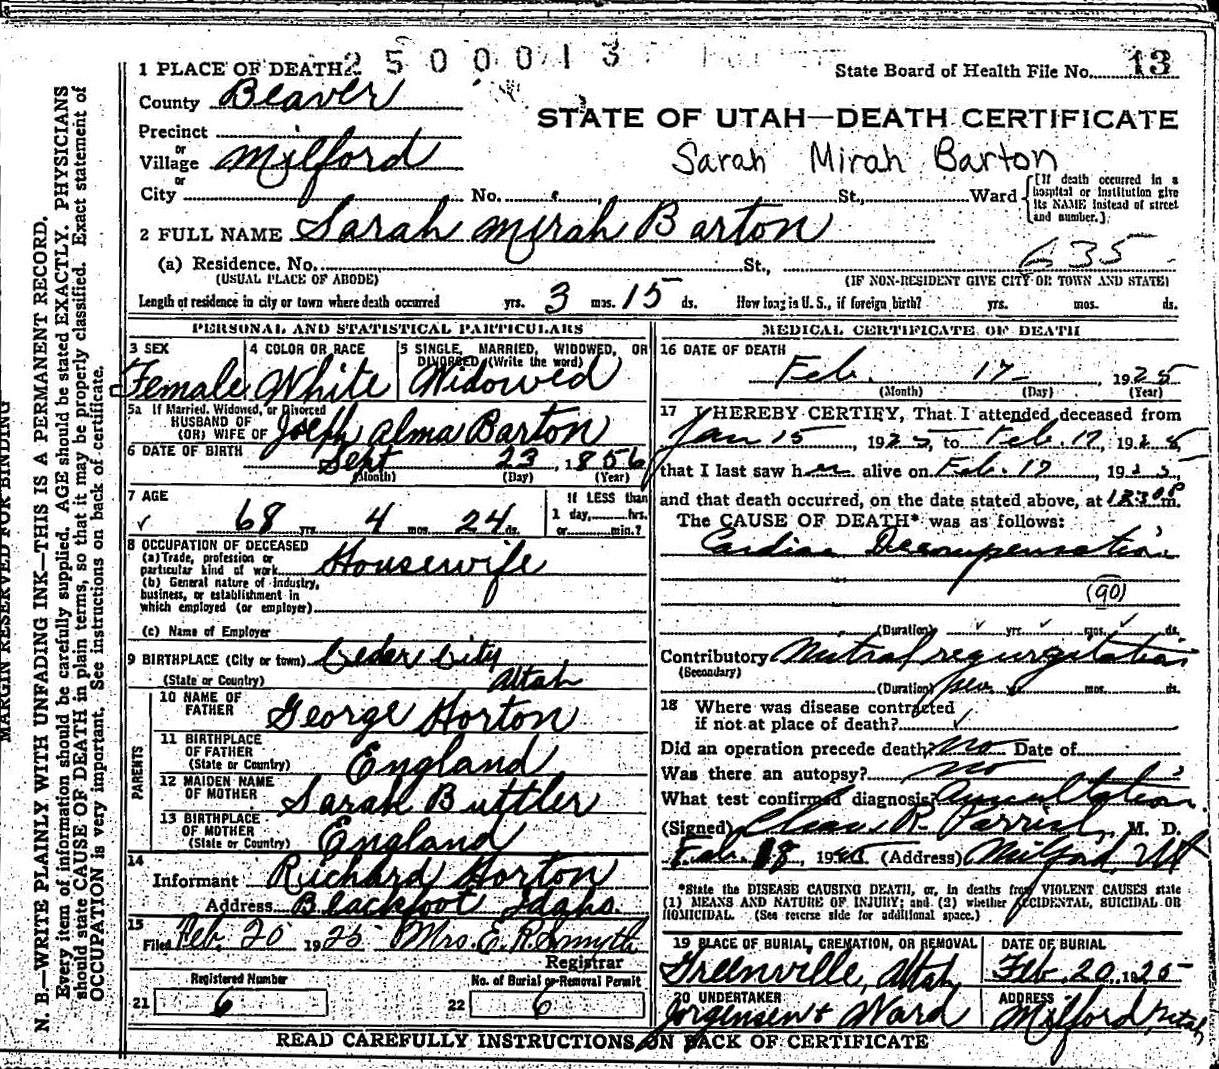 2500013
1 PLACE OF DEATH
State Board of Health File No. 13
County Beaver
STATE OF UTAH—DEATH CERTIFICATE
Precinct
or
Village Milford
Sarah Mirah Barton
or
City No. St., Ward
[If death occurred in a hospital or institution give its NAME instead of street and number.]
2 FULL NAME Sarah Mirah Barton
635
(a) Residence. No. St.,
(USUAL PLACE OF ABODE) (IF NON-RESIDENT GIVE CITY OR TOWN AND STATE)
Length of residence in city or town where death occurred yrs. 3 mos. 15 ds. How long is U. S., if foreign birth? yrs. mos. ds.
PERSONAL AND STATISTICAL PARTICULARS
3 SEX
Female
4 COLOR OR RACE
White
5 SINGLE, MARRIED, WIDOWED, OR
DIVORCED (Write the word)
Widowed
5a If Married, Widowed, or Divorced
HUSBAND OF
(OR) WIFE OF Joseph Alma Barton
6 DATE OF BIRTH Sept 23, 1856
(Month) (Day) (Year)
7 AGE
68 yrs. 4 mos. 24 ds.
If LESS than
1 day, hrs.
or min.?
8 OCCUPATION OF DECEASED
(a) Trade, profession or
particular kind of work Housewife
(b) General nature of industry,
business, or establishment in
which employed (or employer)
(c) Name of Employer
9 BIRTHPLACE (City or town) Cedar City
(State or Country) Utah
PARENTS
10 NAME OF
FATHER George Horton
11 BIRTHPLACE
OF FATHER
(State or Country) England
12 MAIDEN NAME
OF MOTHER Sarah Buttler
13 BIRTHPLACE
OF MOTHER
(State or Country) England
14
Informant Richard Horton
Address Blackfoot Idaho.
15
Filed Feb. 20 1925 Mrs. E. R. Smyth
Registrar
Registered Number
21 6
No. of Burial or Removal Permit
22 6
MEDICAL CERTIFICATE OF DEATH
16 DATE OF DEATH
Feb. 17, 1925
(Month) (Day) (Year)
17 I HEREBY CERTIFY, That I attended deceased from
Jan 15, 1925, to Feb. 17, 1925,
that I last saw her alive on Feb. 17, 1925,
and that death occurred, on the date stated above, at m.
The CAUSE OF DEATH* was as follows:
Cardiac Decompensation
(90)
(Duration) yrs. mos. ds.
Contributory Mitral regurgitation
(Secondary)
(Duration) mos. ds.
18 Where was disease contracted
if not at place of death?
Did an operation precede death? no Date of
Was there an autopsy? no
What test confirmed diagnosis? Auscultation
(Signed) Chas. R. Parrish, M. D.
Feb. 18, 1925 (Address) Milford, Ut
*State the DISEASE CAUSING DEATH, or, in deaths from VIOLENT CAUSES state
(1) MEANS AND NATURE OF INJURY; and (2) whether ACCIDENTAL, SUICIDAL OR
HOMICIDAL. (See reverse side for additional space.)
19 PLACE OF BURIAL, CREMATION, OR REMOVAL
Greenville, Utah
DATE OF BURIAL
Feb. 20, 1925
20 UNDERTAKER
Jorgensen & Ward
ADDRESS
Milford, Utah
READ CAREFULLY INSTRUCTIONS ON BACK OF CERTIFICATE
MARGIN RESERVED FOR BINDING
N. B.—WRITE PLAINLY WITH UNFADING INK—THIS IS A PERMANENT RECORD.
Every item of information should be carefully supplied. AGE should be stated EXACTLY. PHYSICIANS
should state CAUSE OF DEATH in plain terms, so that it may be properly classified. Exact statement of
OCCUPATION is very important. See instructions on back of certificate.